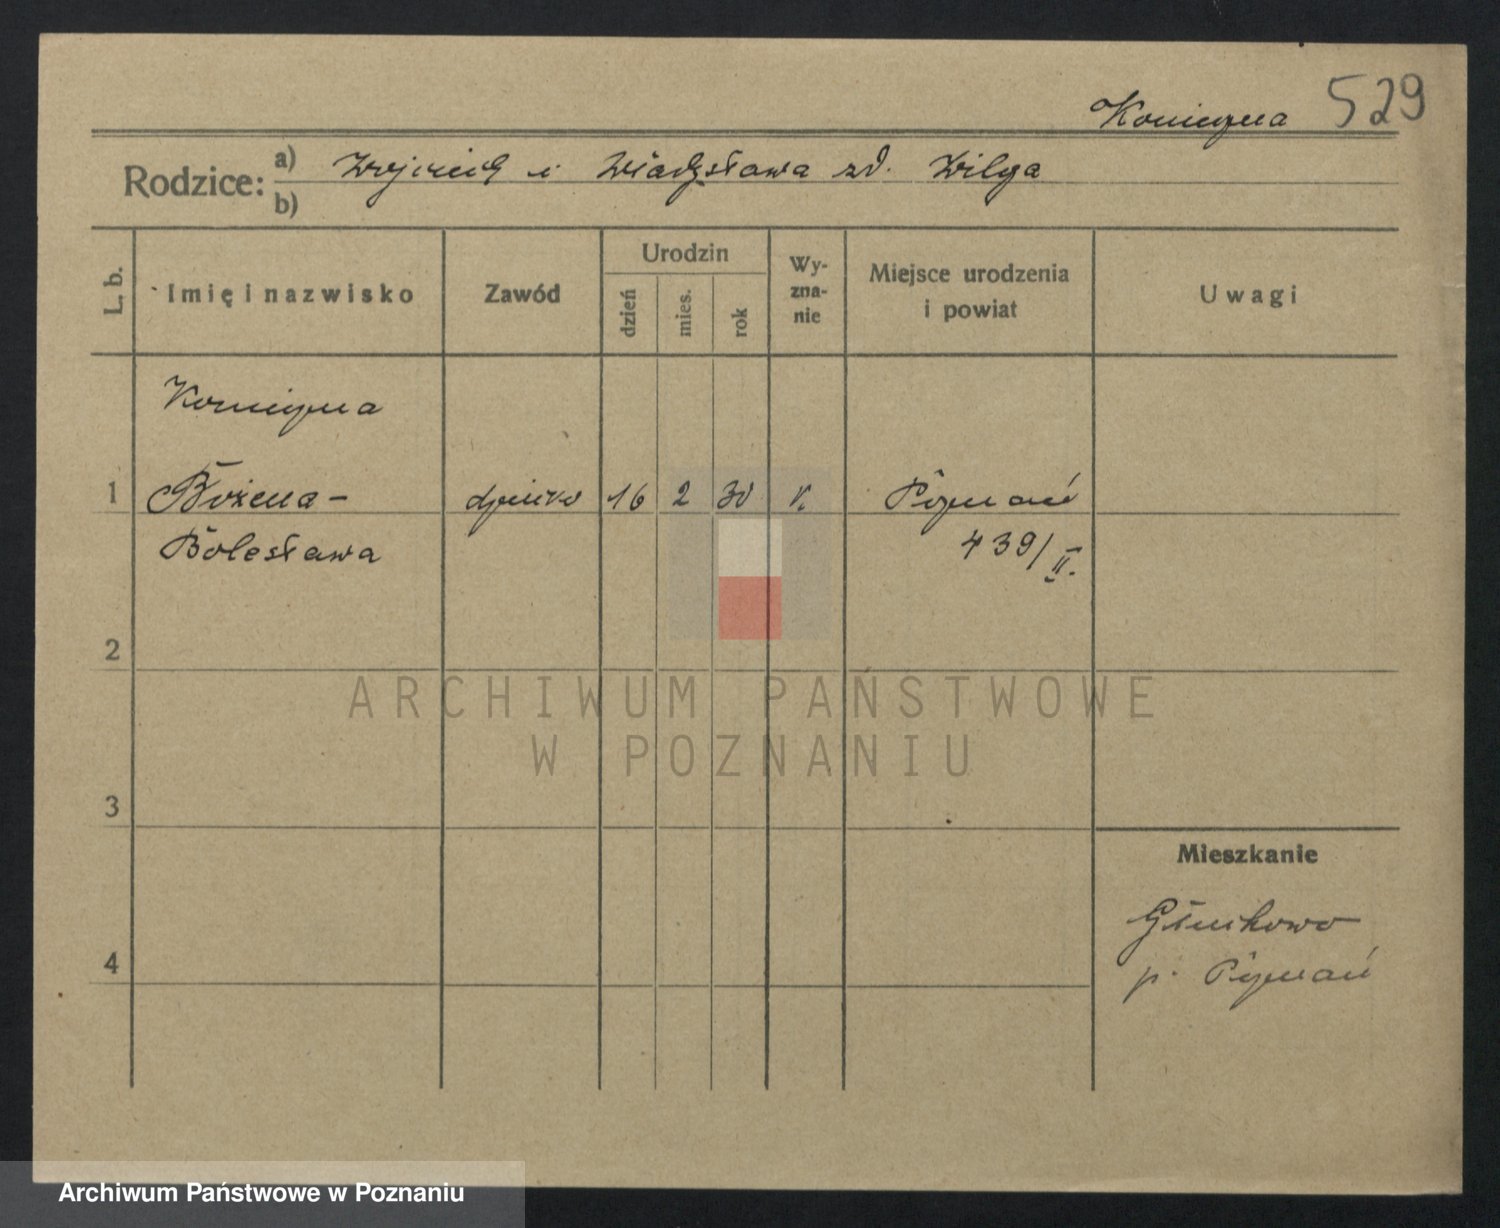 Konieczna 529
Rodzice: a) Wojciech i Władysława zd. Wilga
b)
L. b.
Imię i nazwisko
Zawód
Urodzin
dzień
mies.
rok
Wy-
zna-
nie
Miejsce urodzenia
i powiat
Uwagi
Konieczna
1 Bożena- dziecko 16 2 30 k. Poznań
Bolesława 439/II.
2
3
4
Mieszkanie
p. Poznań
ARCHIWUM PAŃSTWOWE
W POZNANIU
Archiwum Państwowe w Poznaniu